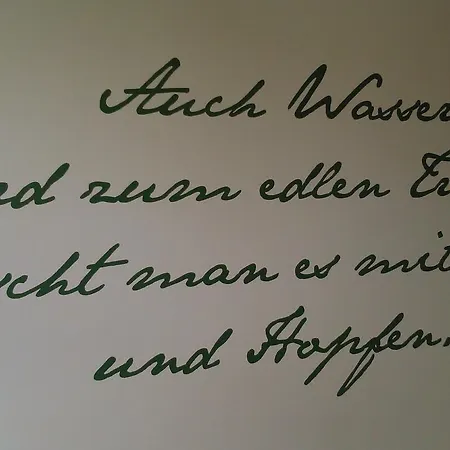 Auch Wasser
rd zum edlen Tr
cht man es mit
und Hopfen.